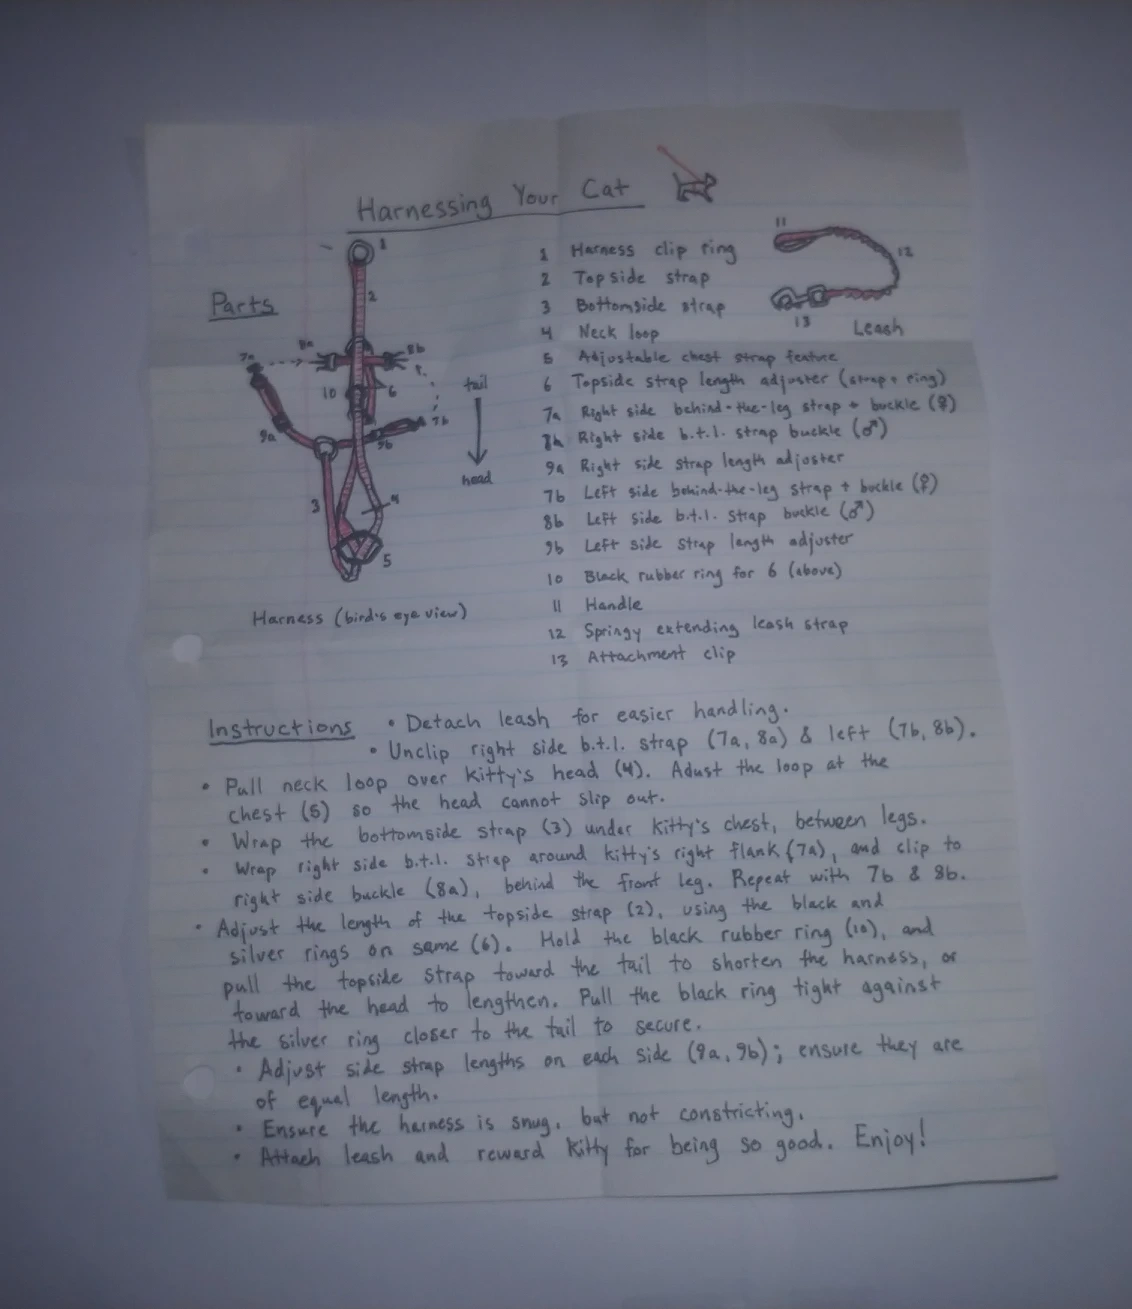 Harnessing Your Cat
Parts
1 Harness clip ring
2 Topside strap
3 Bottomside strap
4 Neck loop
5 Adjustable chest strap feature
6 Topside strap length adjuster (strap + ring)
7a Right side behind-the-leg strap + buckle (♀)
Right side b.t.l. strap buckle (♂)
9a Right side strap length adjuster
7b Left side behind-the-leg strap + buckle (♀)
8b Left side b.t.l. strap buckle (♂)
9b Left side strap length adjuster
10 Black rubber ring for 6 (above)
11 Handle
12 Springy extending leash strap
13 Attachment clip
1
2
8a
8b
7a
10
6
7b
9a
9b
3
4
5
tail
head
Harness (bird's eye view)
11
12
13
Leash
Instructions • Detach leash for easier handling.
• Unclip right side b.t.l. strap (7a, 8a) & left (7b, 8b).
• Pull neck loop over kitty's head (4). Adust the loop at the
chest (5) so the head cannot slip out.
• Wrap the bottomside strap (3) under kitty's chest, between legs.
• Wrap right side b.t.l. strap around kitty's right flank (7a), and clip to
right side buckle (8a), behind the front leg. Repeat with 7b & 8b.
• Adjust the length of the topside strap (2), using the black and
silver rings on same (6). Hold the black rubber ring (10), and
pull the topside strap toward the tail to shorten the harness, or
toward the head to lengthen. Pull the black ring tight against
the silver ring closer to the tail to secure.
• Adjust side strap lengths on each side (9a, 9b); ensure they are
of equal length.
• Ensure the harness is snug, but not constricting.
• Attach leash and reward kitty for being so good. Enjoy!